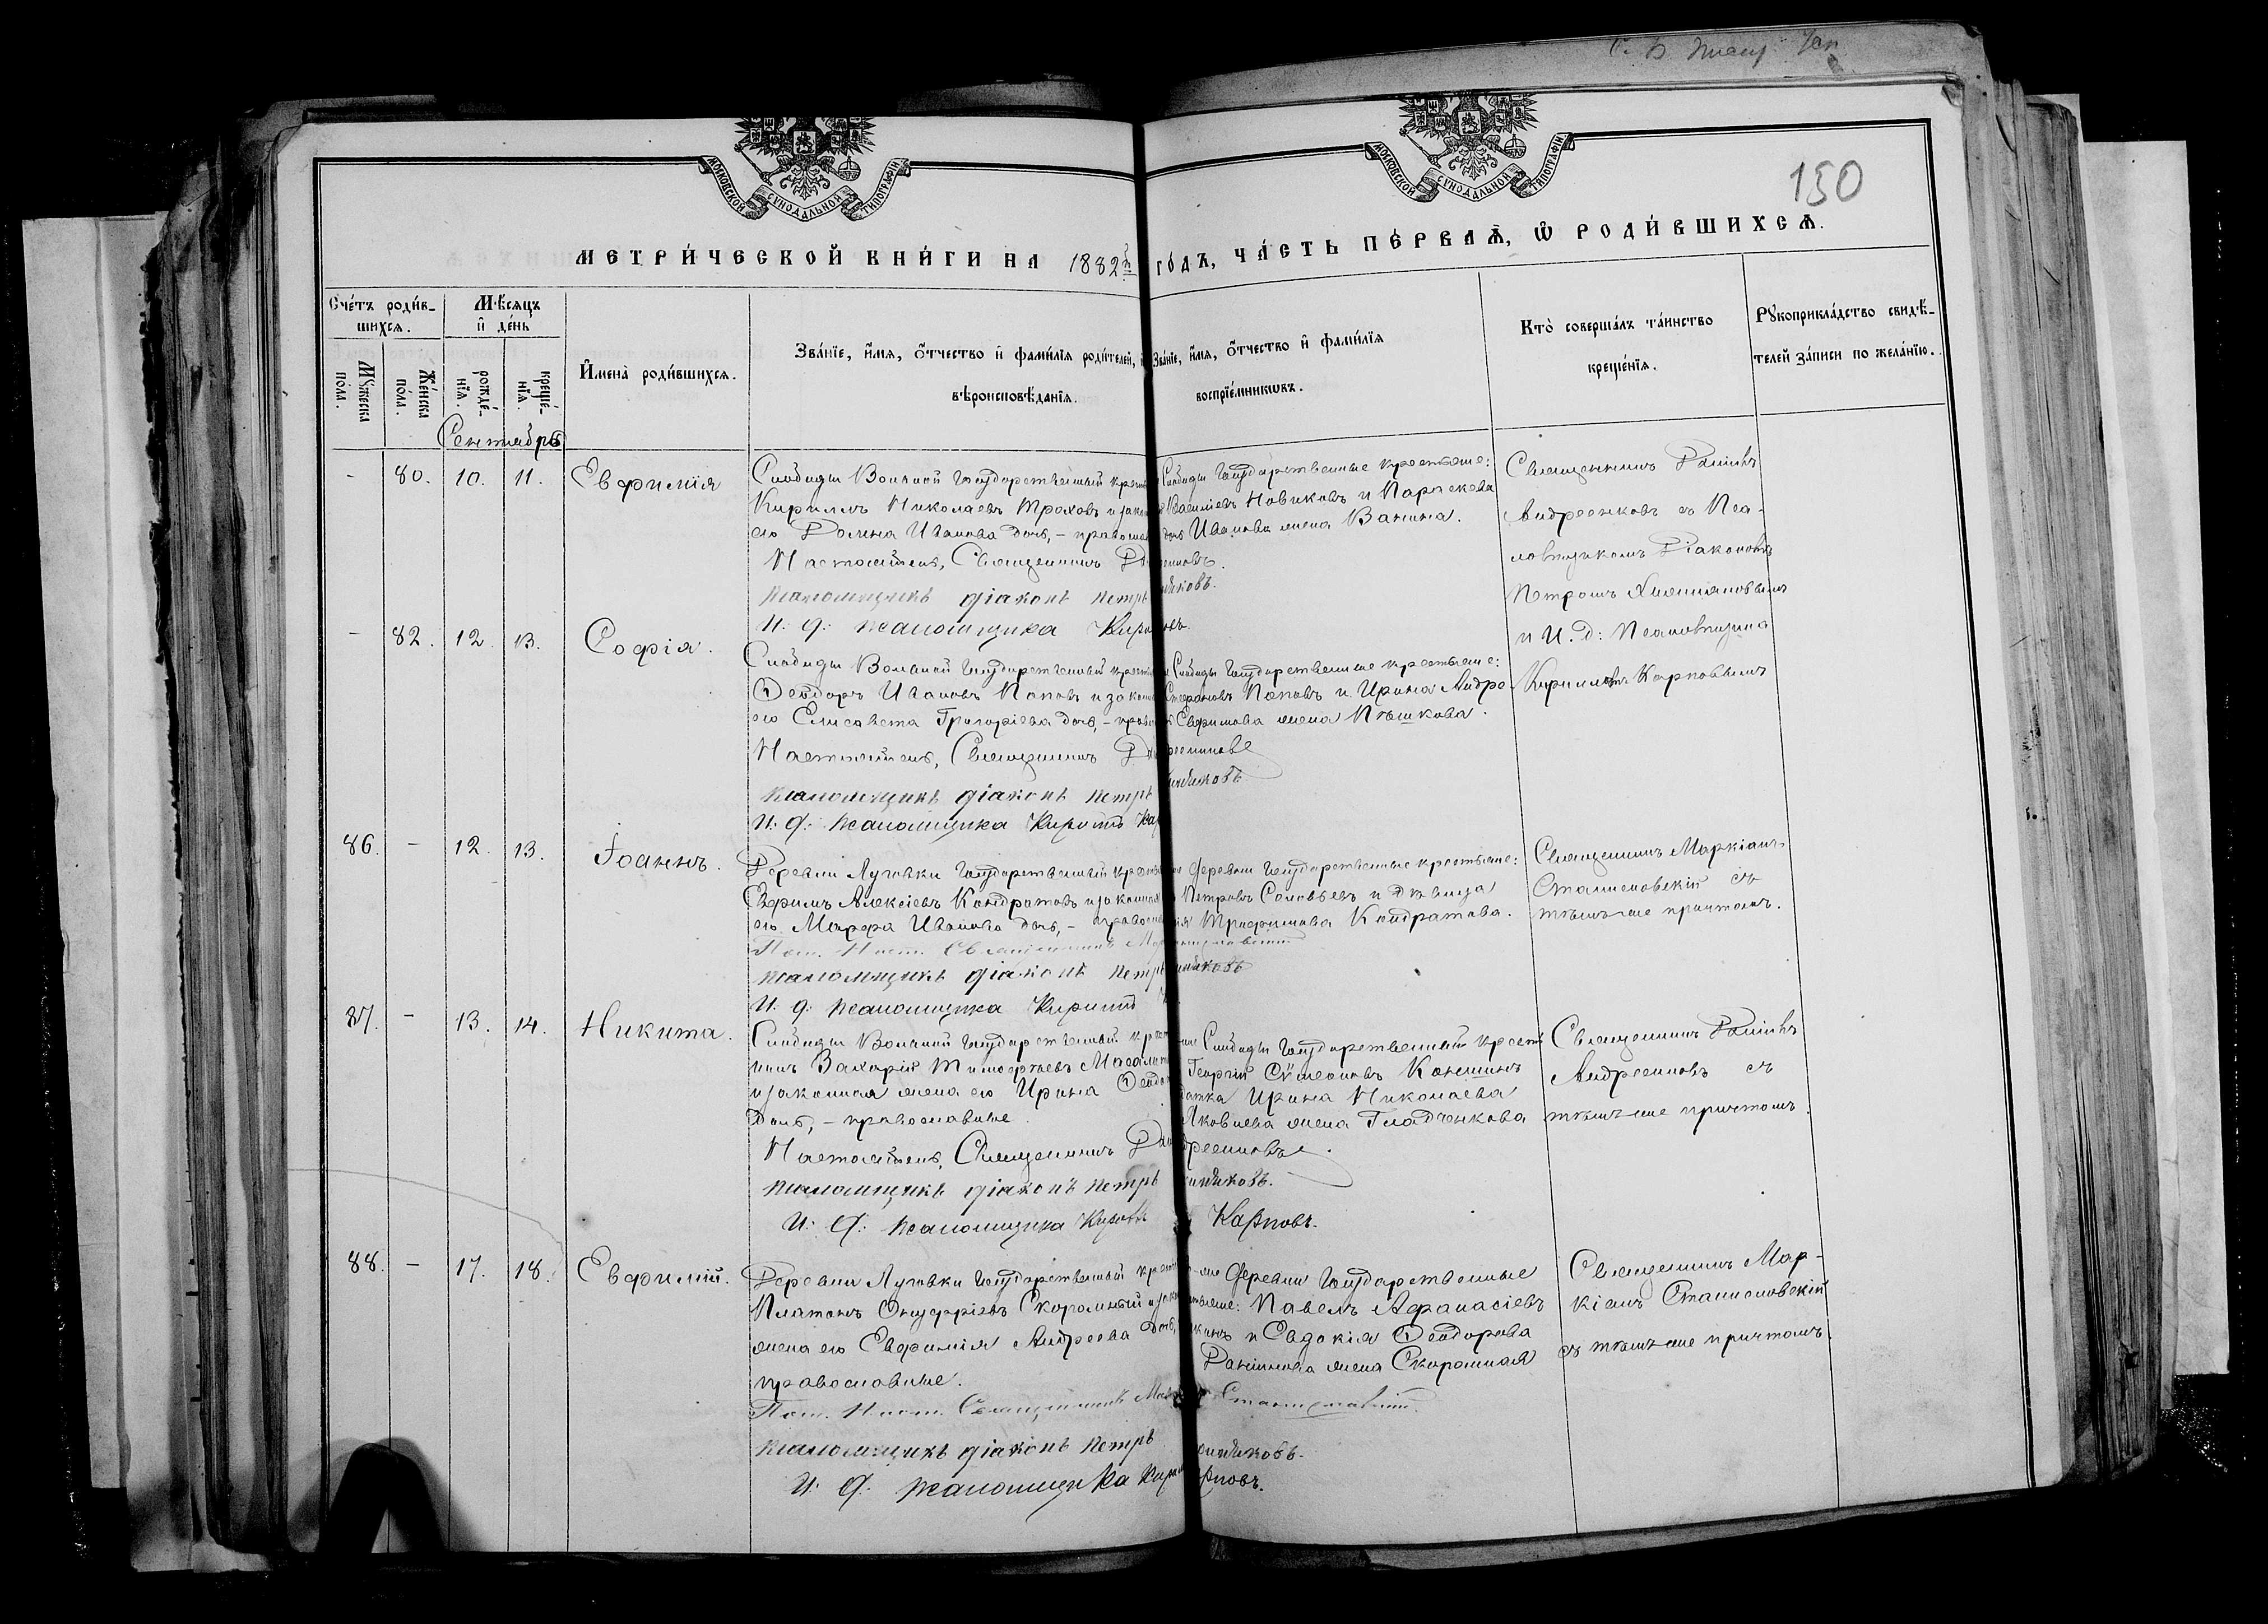 С. В. Ткац
150
МОСКОВСКОЙ СУНОДАЛЬНОЙ ТИПОГРАФІИ
МОСКОВСКОЙ СУНОДАЛЬНОЙ ТИПОГРАФІИ
МЕТРИ́ЧЕСКОЙ КНИ́ГИ НА 1882й
ГО́ДЪ, ЧА́СТЬ ПЕ́РВАѦ, Ѡ РОДИ́ВШИХСѦ.
Сче́тъ роди́в-
шихсѧ.
Мѣ́сѧцъ
и҆ де́нь
Мꙋжеска
пола.
Же́нска
по́ла.
рожде́-
нїѧ.
креще́-
нїѧ.
И҆мена̀ роди́вшихсѧ.
Зва́нїе, и҆́мѧ, ѻ҆́тчество и҆ фами́лїѧ роди́телей, и҆
вѣроисповѣ́данїѧ.
Зва́нїе, и҆́мѧ, ѻ҆́тчество и҆ фами́лїѧ
воспрїе́мникѡвъ.
Кто̀ соверша́лъ та́инство
креще́нїѧ.
Рꙋкоприкла́дство свидѣ́-
телей за́писи по жела́нїю.
Сентября
- 80. 10. 11. Евфимія
Слободы Вольной Государственный крест
Кириллъ Николаевъ Трахов и закон
его Домна Иванова дочь, - православ
Настоятель, Священникъ Да
псаломщикъ діаконъ Петръ
И. д. псаломщика Кири
Слободы Государственные крестьяне:
Василіевъ Новиковъ и Параскева
дочь Иванова жена Ванина.
Священникъ Даніилъ
Андреенковъ съ Пса-
ломщикомъ Діакономъ
Петромъ
и И. д: Псаломщика
Кирилломъ Карповымъ
- 82. 12. 13. Софія.
Слободы Вольной Государственный крестья
Ѳеодоръ Ивановъ Поповъ и закон
его Елисавета Григоріева дочь, - право
Настоятель, Священникъ Да
псаломщикъ діаконъ Петръ
И. д. псаломщика Кириллъ Кар
Слободы Государственные крестьяне:
Стефановъ Поповъ и Ирина Андре
Евфимова жена Пѣшкова.
86. - 12. 13. Іоаннъ.
Деревни Луговки Государственный крестья
Евфимъ Алексіевъ Кондратовъ и законная
его Марфа Иванова дочь, - православ
Священникъ
псаломщикъ діаконъ Петръ
И. д. псаломщика Кириллъ
деревни Государственные крестьяне:
Петровъ Соловьевъ и дѣвица
Трифонова Кондратова.
Священникъ Маркіанъ
Станиславскій съ
тѣмъ-же причтомъ.
87. - 13. 14. Никита.
Слободы Вольной Государственный крест
нинъ Захарій Тимофѣевъ
и законная жена его Ирина Ѳеодо
дочь, - православные.
Настоятель, Священникъ Да
псаломщикъ діаконъ Петръ
И. д. псаломщика Кириллъ Карповъ.
Слободы Государственный крест
Георгій Сѵмеоновъ Коншинъ
Ирина Николаева
Яковлева жена Гладченкова
Священникъ Даніилъ
Андреенковъ съ
тѣмъ-же причтомъ.
88. - 17. 18. Евфимій.
Деревни Луговки Государственный крест
Платонъ Онуфріевъ Скоромный и зак
жена его Евфимія Андреева дочь,
православные.
Священникъ Мар Станиславскій.
псаломщикъ діаконъ Петръ
И. д. псаломщика Кирил рповъ.
деревни Государственные
Павелъ Афанасіевъ
и Евдокія Ѳеодорова
Даніилова жена Скоромная
Священникъ Мар-
кіанъ Станиславскій
съ тѣмъ-же причтомъ.